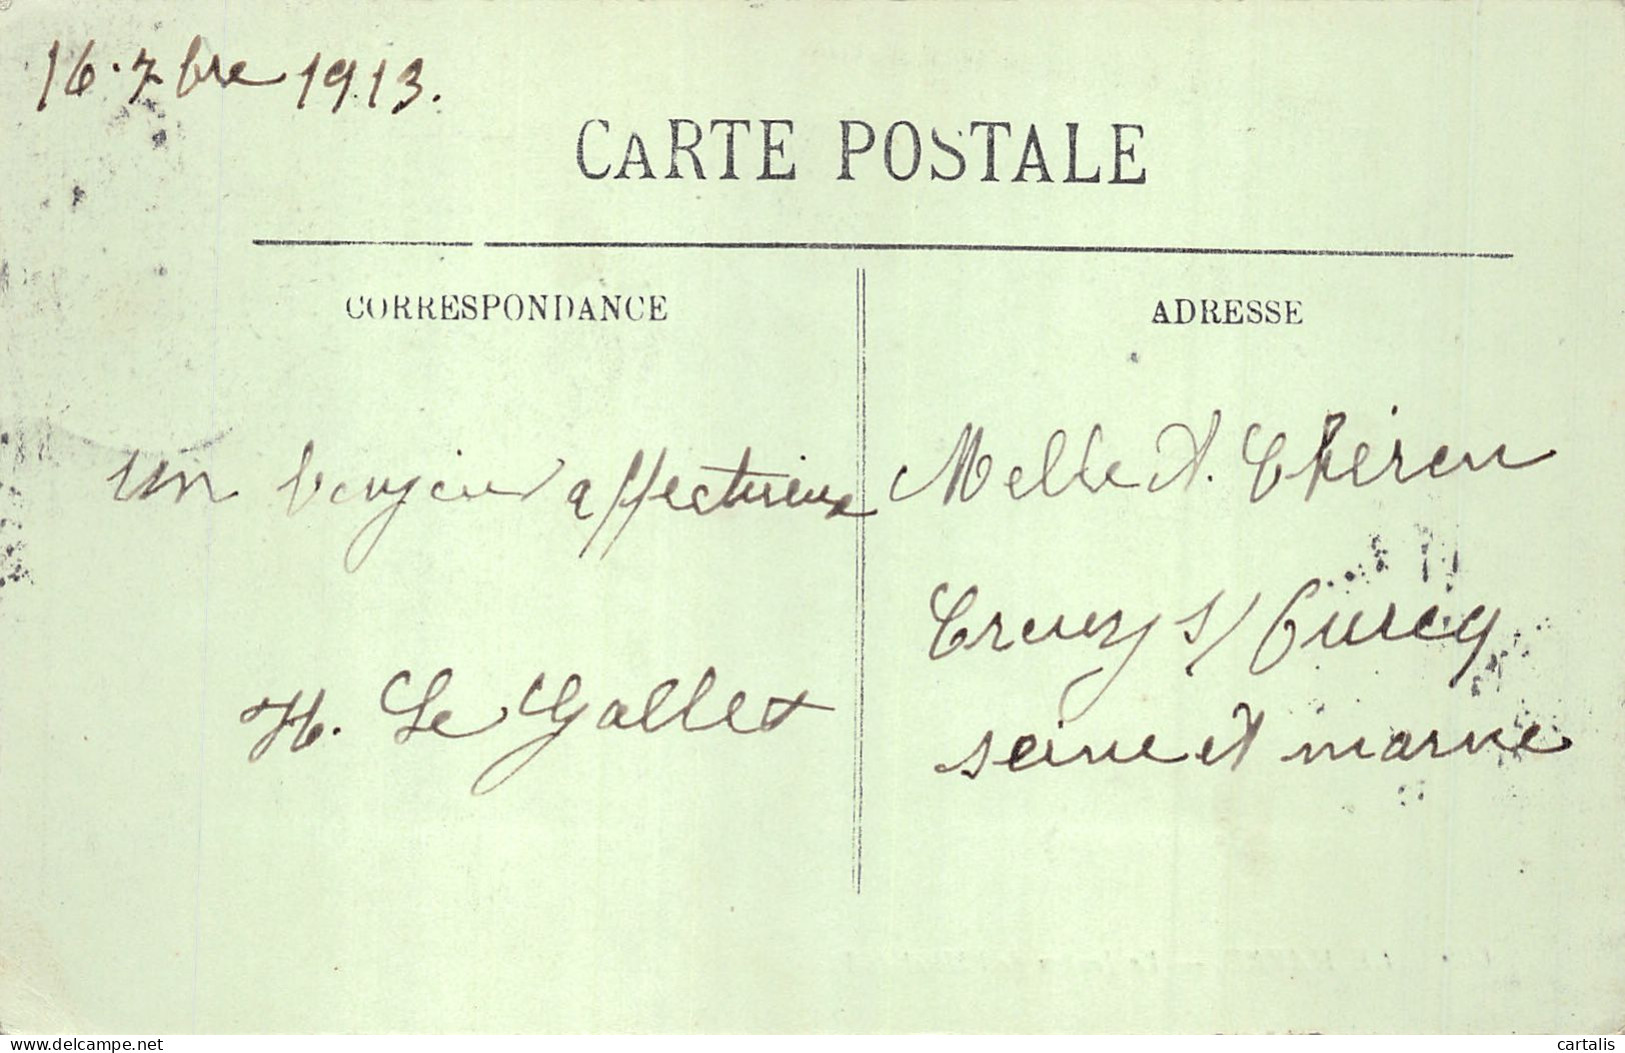 16.7bre 1913.
CARTE POSTALE
CORRESPONDANCE
ADRESSE
un bonjour affectueux
H. Le Gallet
Melle A. Théren
Crouy s/ Ourcq
seine et marne
delcampe.net
cartalis